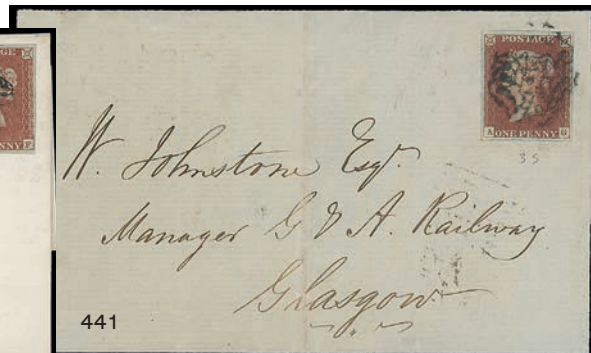 GE
NNY F
POSTAGE
A ONE PENNY G
35
W. Johnstone Esqr.
Manager G & A. Railway
Glasgow
441